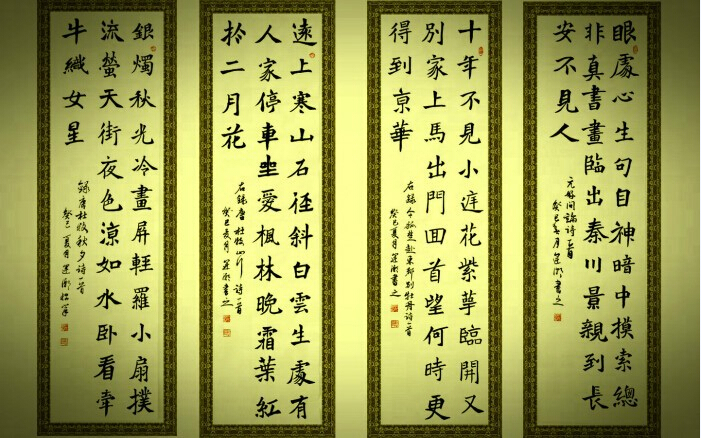 眼處心生句自神暗中摸索總
非真書畫臨出秦川景親到長
安不見人
元好問論詩一首
癸巳夏月書之
十年不見小庭花紫萼臨開又
別家上馬出門回首望何時更
得到京華
右錄令狐楚赴東都別牡丹詩一首
癸巳夏月書之
遠上寒山石徑斜白雲生處有
人家停車坐愛楓林晚霜葉紅
於二月花
右錄唐杜牧山行詩一首
癸巳夏月書之
銀燭秋光冷畫屏輕羅小扇撲
流螢天街夜色涼如水臥看牽
牛織女星
錄唐杜牧秋夕詩一首
癸巳夏月